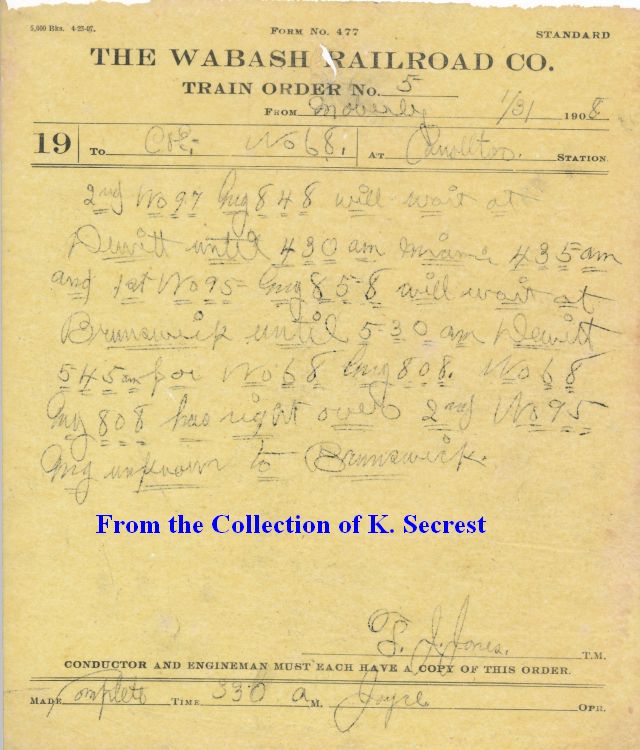 5,000 Bks. 4-23-07.
FORM NO. 477
STANDARD
THE WABASH RAILROAD CO.
TRAIN ORDER No. 5
FROM Moberly 1/31 1908
19 To C&E, No 68, AT Carrollton STATION
2nd No 97 Eng 848 will wait at
Dewitt until 430 am Miami 435 am
and 1st No 95 Eng 858 will wait at
Brunswick until 530 am Dewitt
545 am for No 68 Eng 808. No 68
Eng 808 has right over 2nd No 95
Eng unknown to Brunswick.
From the Collection of K. Secrest
J. Jones. T.M.
CONDUCTOR AND ENGINEMAN MUST EACH HAVE A COPY OF THIS ORDER.
MADE Complete TIME 330 a M. Joyce OPR.